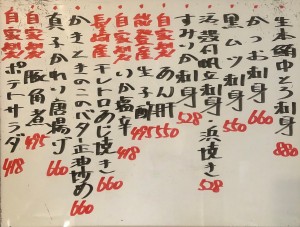 生本鮪中とろ刺身 880
かつお刺身 660
黒ムツ刺身 550
活〆帆立刺身・浜焼き 528
すみいか刺身 528
自家製 あん肝 550
能登産 生子酢 550
自家製 いか塩辛
長崎産 アレトロあじ焼き 660
かきときのこのバター正油炒め 660
真子かれい唐揚げ 660
自家製 豚角煮 495
自家製 ポテトサラダ 418